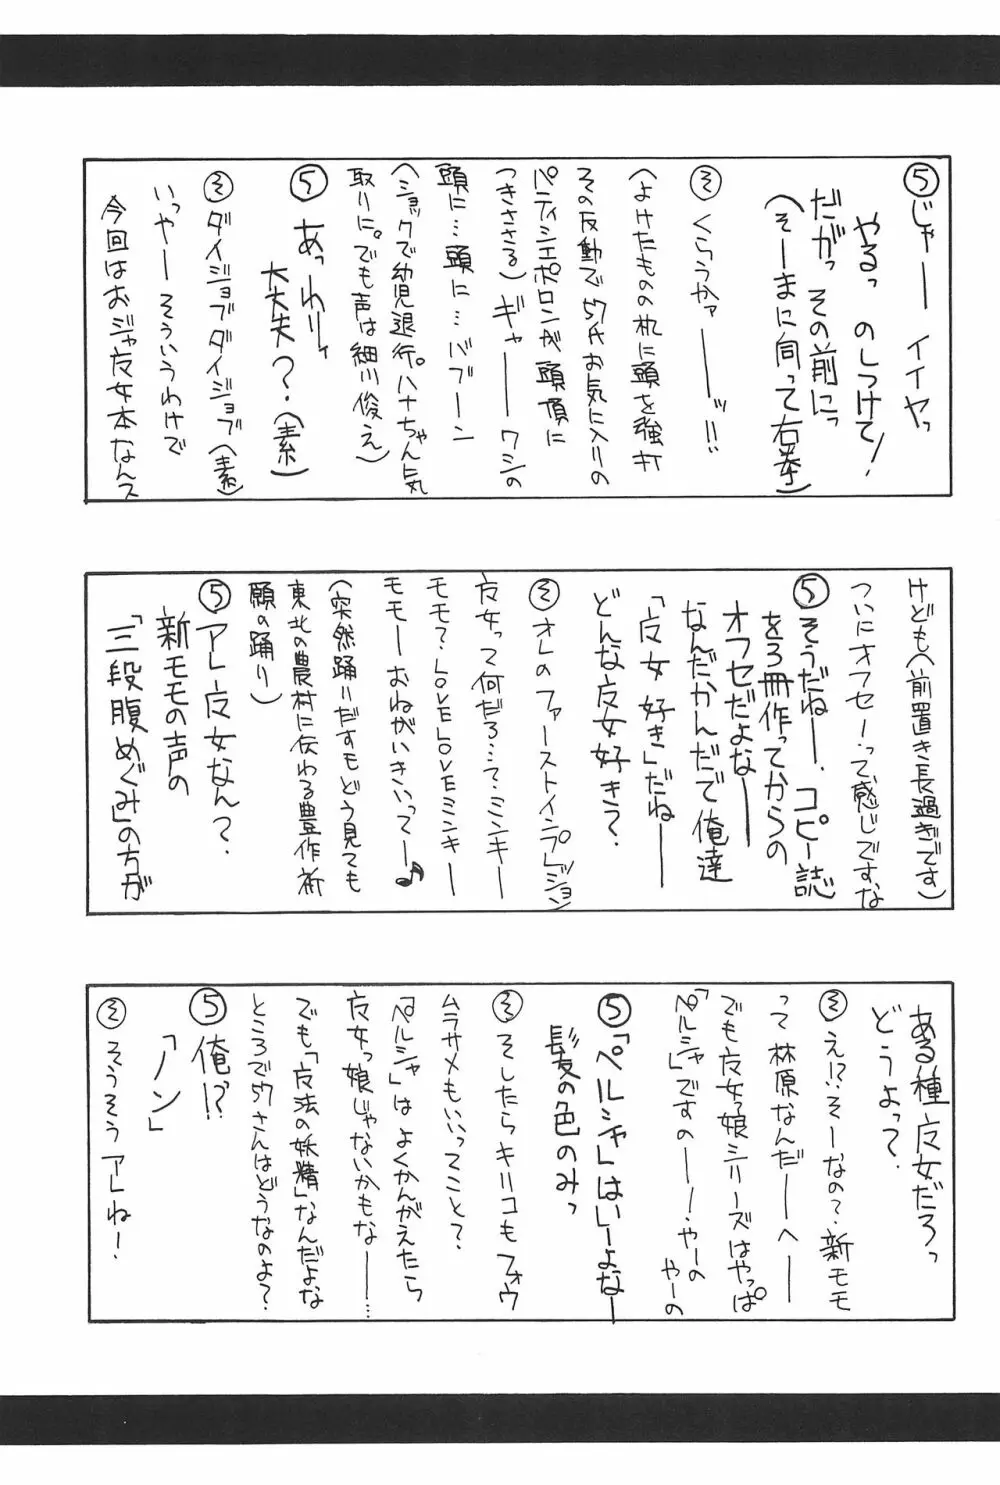 ⑤じゃー イイヤっ
やるっ のしつけて!
だがっ その前にっ
(そーまに向って右拳)
㋞くらうかァーーッ!!
(よけたものの机に頭を強打
その反動で5氏お気に入りの
パティシエポロンが頭頂に
つきささる)ギャーーワシの
頭に…頭に…バブーン
(ショックで幼児退行。ハナちゃん気
取りに。でも声は細川俊え)
⑤あっわりィ
大丈夫?(素)
㋞ダイジョブダイジョブ(素)
いっやーそういうわけで
今回はおジャ魔女本なんス
けども(前置き長過ぎです)
ついにオフセー!って感じですな
⑤そうだねー、コピー誌
を3冊作ってからの
オフセだよなーー
なんだかんだで俺達
「魔女好き」だねーー
どんな魔女好きう?
㋞オレのファーストインプレジョン
魔女って何だろ…?ミンキーー
モモ?LOVELOVEミンキーー
モモーおねがいきいってー♪
(突然踊りだすもどう見ても
東北の農村に伝わる豊作祈
願の踊り)
⑤アレ魔女なん?
新モモの声の
「三段腹めぐみ」の方が
ある種魔女だろっ
どうよって?
㋞え!?そーなの?新モモ
って林原なんだーーへーー
でも魔女っ娘シリーズはやっぱ
「ペルシャ」ですのーー!やーの
やーの
⑤「ペルシャ」はいーよなー
髪の色のみっ
㋞そしたらキリコもフォウ
ムラサメもいいってこと?
「ペルシャ」はよくかんがえたら
魔女っ娘じゃないかもなーー…
でも「魔法の妖精」なんだよな
ところで5さんはどうなのよ?
⑤俺!?
「ノン」
㋞そうそうアレね!